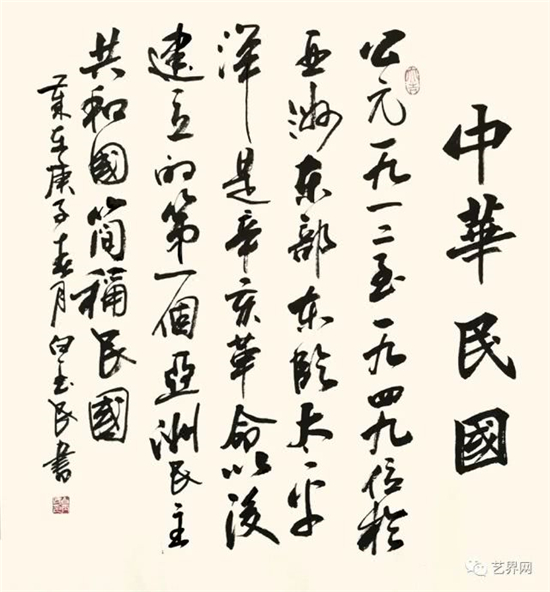 中華民國
公元一九一二至一九四九位於
亚洲东部东臨太平
洋是辛亥革命以後
建立的第一個亞洲民主
共和國簡稱民國
歲在庚子春月白玉民書
艺界网